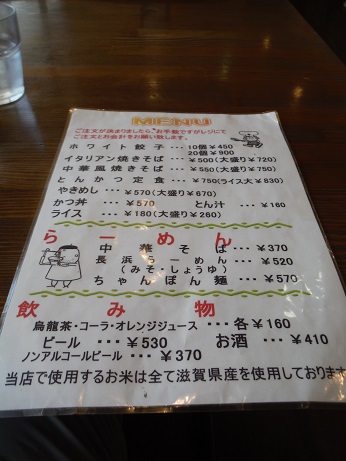 MENU
ご注文が決まりましたら、お手数ですがレジにて
ご注文とお会計をお願い致します。
ホワイト餃子・・・10個¥450
20個¥900
イタリアン焼きそば・・・¥500(大盛り¥720)
中華風焼きそば・・・¥550(大盛り¥770)
とんかつ定食・・・¥750(ライス大¥830)
やきめし・・・¥570(大盛り¥670)
かつ丼・・・¥570 とん汁・・・¥160
ライス・・・¥180(大盛り¥260)
らーめん
中華そば・・・¥370
長浜らーめん・・・¥520
(みそ・しょうゆ)
ちゃんぽん麺・・・¥570
飲み物
烏龍茶・コーラ・オレンジジュース・・・各¥160
ビール・・・¥530 お酒・・・¥410
ノンアルコールビール・・・¥370
当店で使用するお米は全て滋賀県産を使用しております